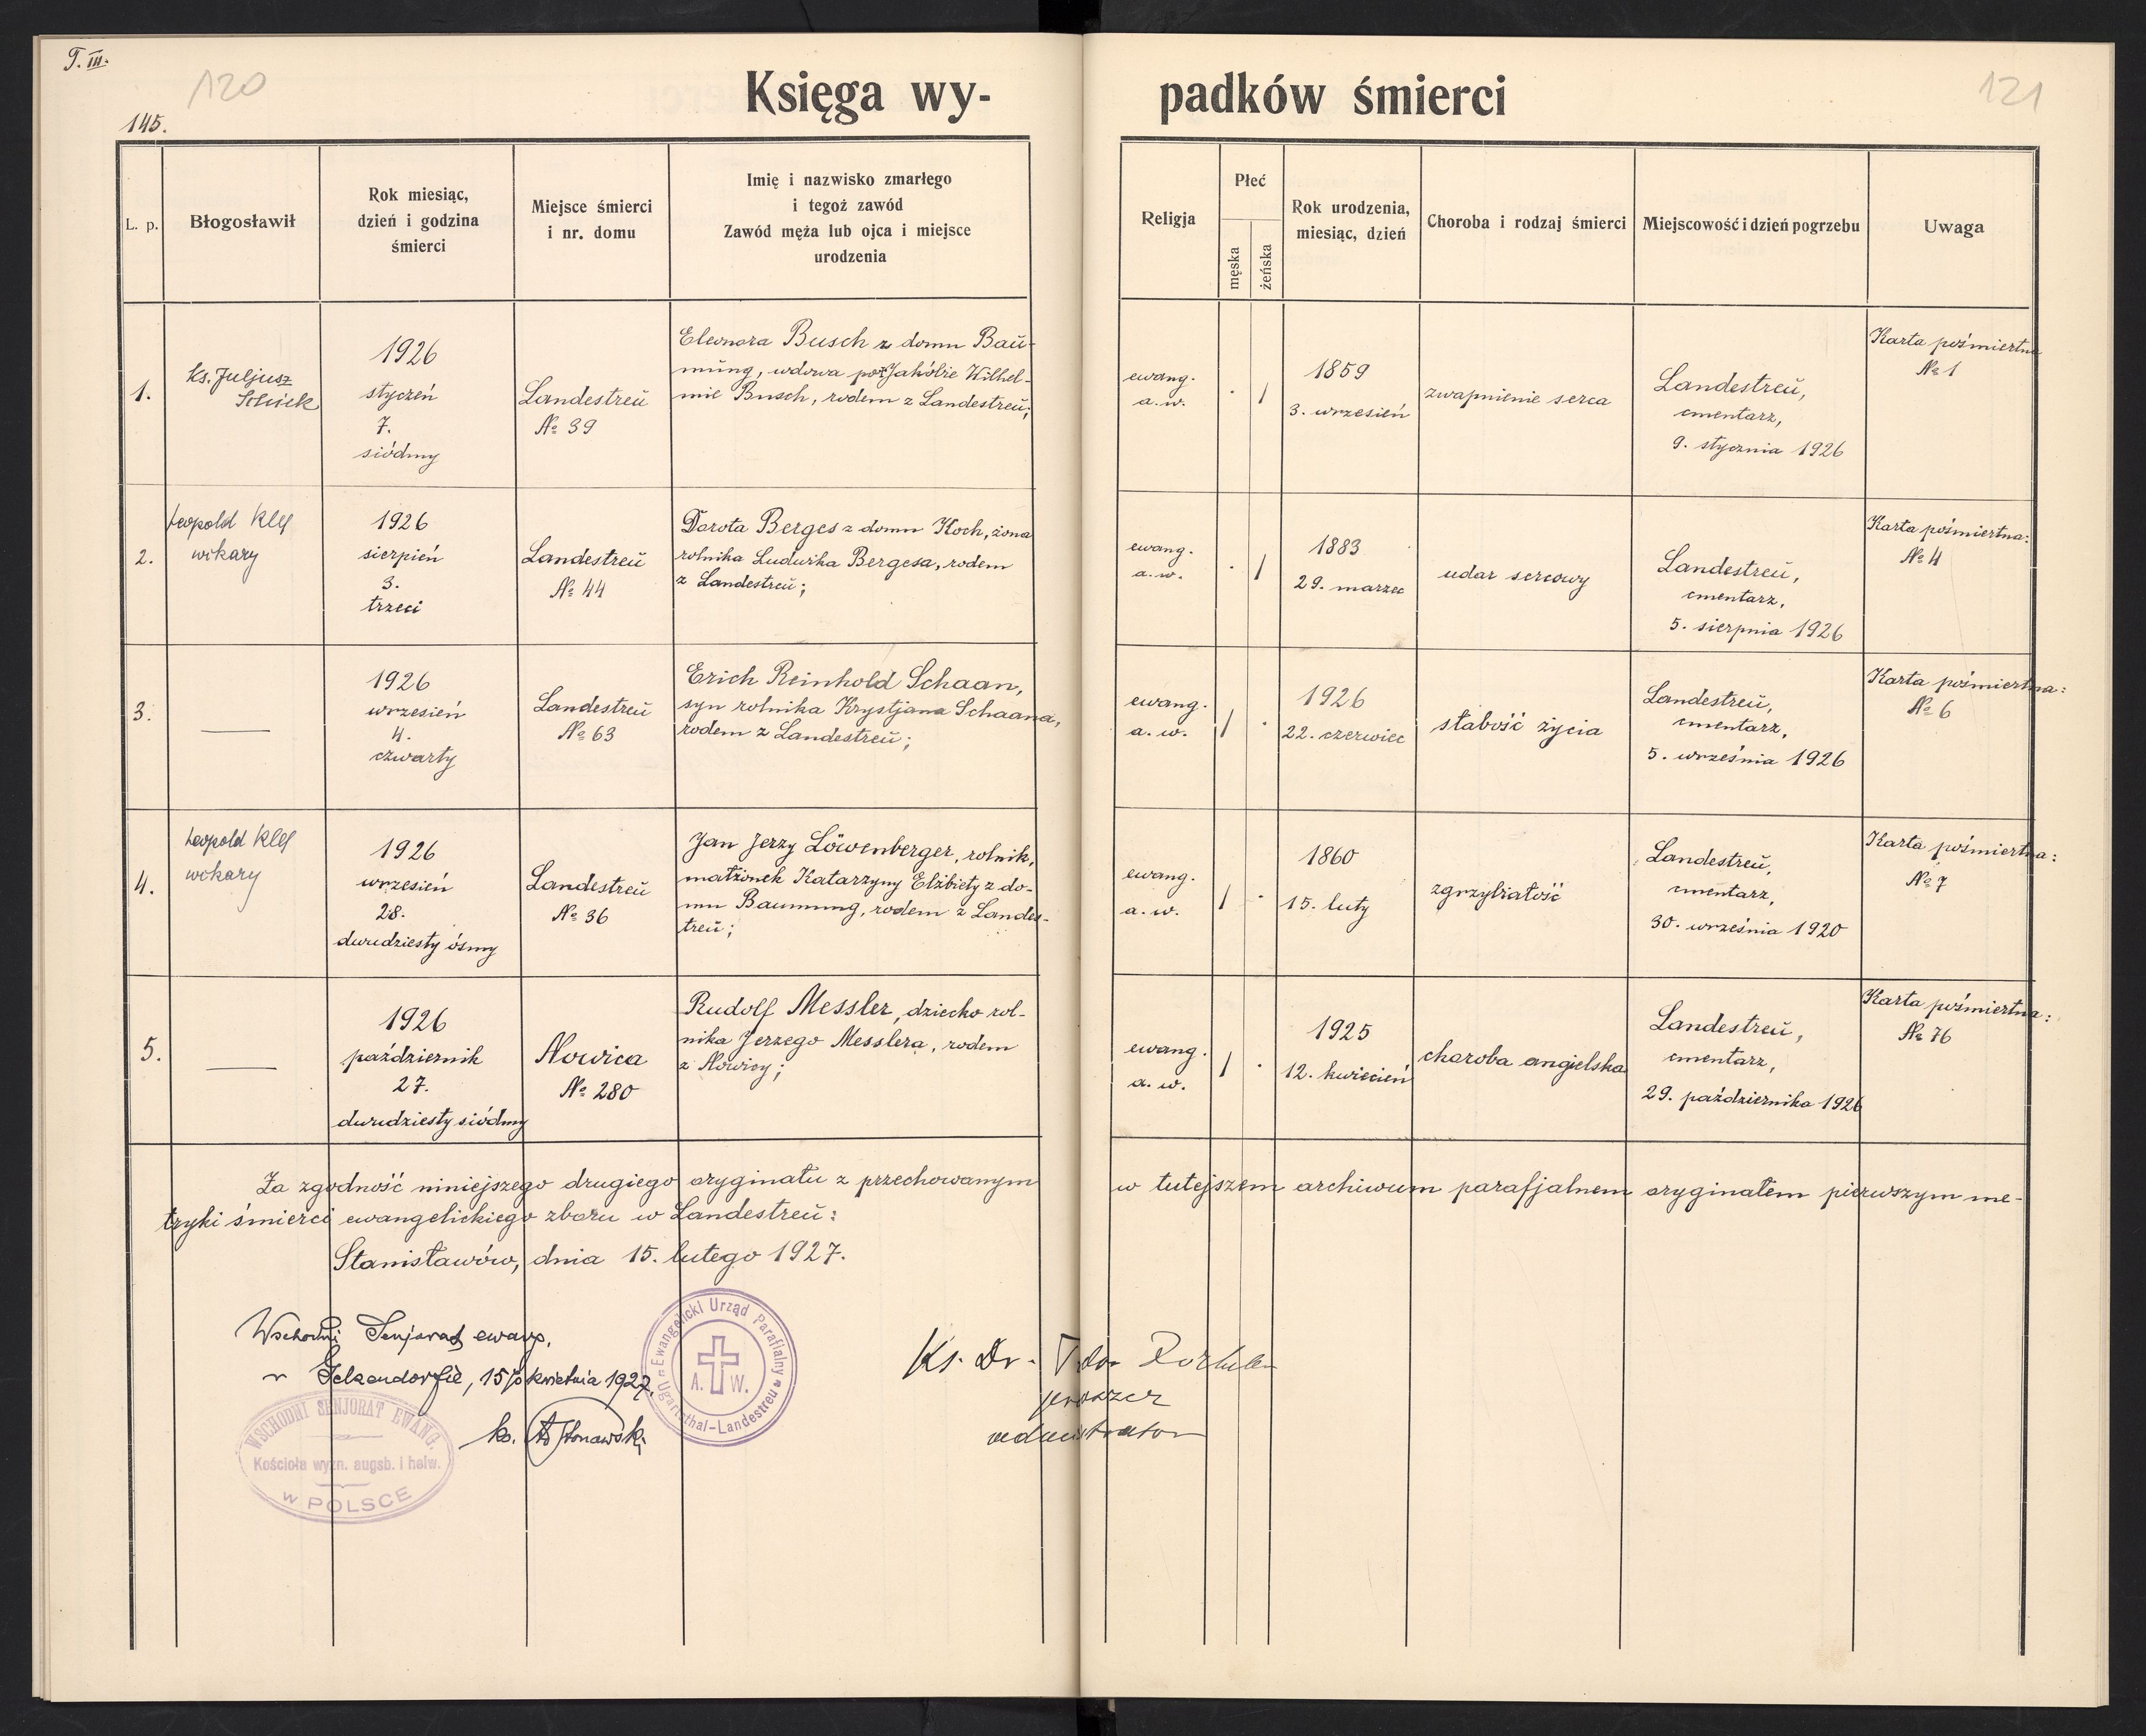 T. III.
120
121
145.
Księga wy-
padków śmierci
L. p.
Błogosławił
Rok miesiąc,
dzień i godzina
śmierci
Miejsce śmierci
i nr. domu
Imię i nazwisko zmarłego
i tegoż zawód
Zawód męża lub ojca i miejsce
urodzenia
Religja
Płeć
męska
żeńska
Rok urodzenia,
miesiąc, dzień
Choroba i rodzaj śmierci
Miejscowość i dzień pogrzebu
Uwaga
1.
ks. Juljusz
1926
styczeń
7.
siódmy
Landestreŭ
№ 39
Eleonora Busch z domu Baŭ-
mŭng, wdowa po Jakóbie Wilhel-
mie Busch, rodem z Landestreŭ;
ewang.
a. w.
· /
1859
3. wrzesień
zwapnienie serca
Landestreŭ,
cmentarz,
9. stycznia 1926
Karta pośmiertna
№ 1
2.
Leopold Kleß
wikary
1926
sierpień
3.
trzeci
Landestreŭ
№ 44
Dorota Berges z domu Koch, żona
rolnika Ludwika Bergesa, rodem
z Landestreŭ;
ewang.
a. w.
· /
1883
29. marzec
udar sercowy
Landestreŭ,
cmentarz,
5. sierpnia 1926
Karta pośmiertna:
№ 4
3.
—
1926
wrzesień
4.
czwarty
Landestreŭ
№ 63
Erich Reinhold Schaan,
syn rolnika Krystjana Schaana,
rodem z Landestreŭ;
ewang.
a. w.
/ ·
1926
22. czerwiec
słabość życia
Landestreŭ,
cmentarz,
5. września 1926
Karta pośmiertna:
№ 6
4.
Leopold Kleß
wikary
1926
wrzesień
28.
dwudziesty ósmy
Landestreŭ
№ 36
Jan Jerzy Löwenberger, rolnik,
małżonek Katarzyny Elżbiety z do-
mu Baumung, rodem z Landes-
treŭ;
ewang.
a. w.
/ ·
1860
15. luty
zgrzybiałość
Landestreŭ,
cmentarz,
30. września 1920
Karta pośmiertna:
№ 7
5.
—
1926
październik
27.
dwudziesty siódmy
Nowica
№ 280
Rudolf Messler, dziecko rol-
nika Jerzego Messlera, rodem
z Nowicy;
ewang.
a. w.
/ ·
1925
12. kwiecień
choroba angielska
Landestreŭ,
cmentarz,
29. października 1926
Karta pośmiertna:
№ 76
Za zgodność niniejszego drugiego oryginału z przechowanym w tutejszem archiwum parafjalnem oryginałem pierwszym me-
tryki śmierci ewangelickiego zboru w Landestreŭ:
Stanisławów, dnia 15. lutego 1927.
Wschodni Senjorat ewang.
w Gelsendorfie, 15/ kwietnia 1927.
ks.
WSCHODNI SENJORAT EWANG.
Kościoła wyzn. augsb. i helw.
w POLSCE
Ewangelicki Urząd Parafialny
A. W.
Ugartsthal-Landestreu
Ks. Dr.